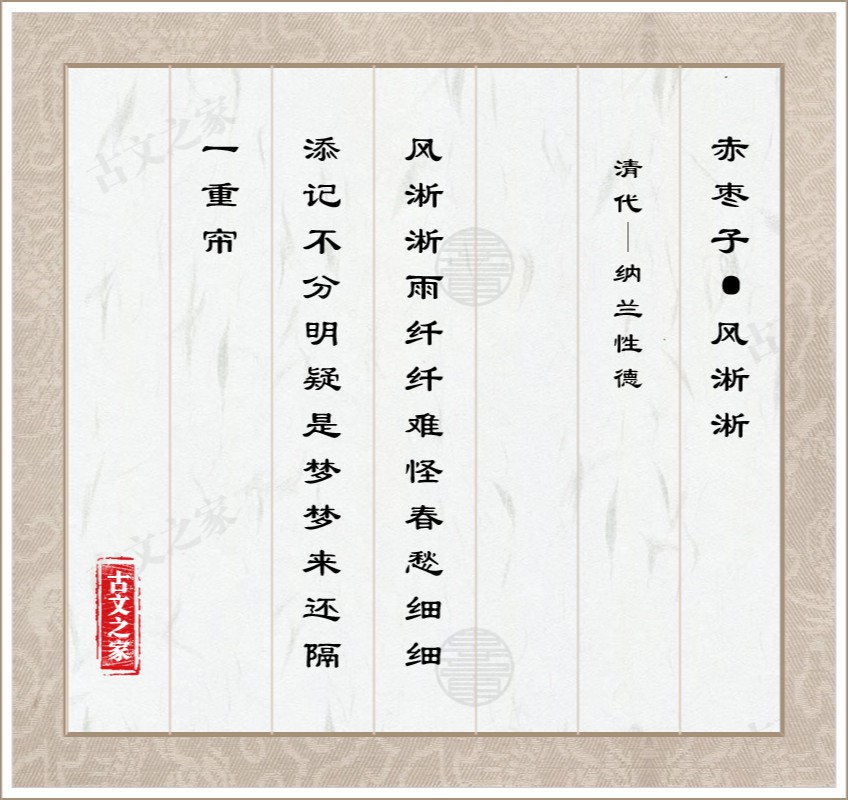 赤枣子●风淅淅
清代—纳兰性德
风淅淅雨纤纤难怪春愁细细
添记不分明疑是梦梦来还隔
一重帘
古文之家
古文之家
古文之家